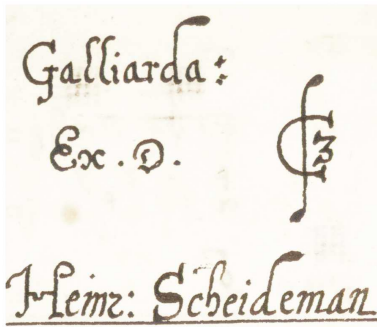 Galliarda:
Ex. D.
Heinr: Scheideman